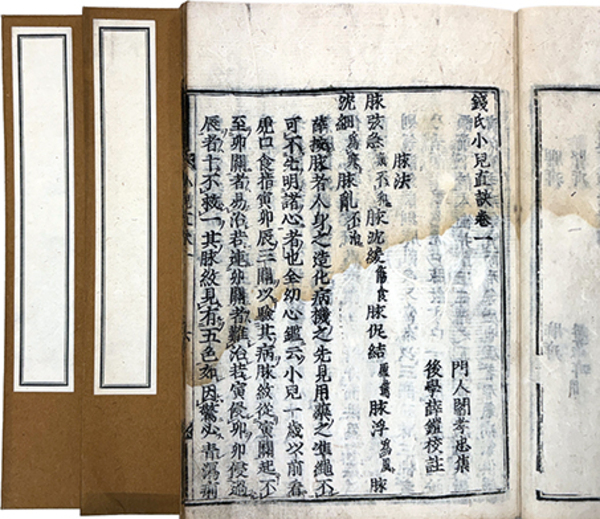 錢氏小兒直訣卷一
門人閻孝忠集
後學薛鎧校註
脉法
脉弦急氣不和脉沈緩傷食脉促結虛驚脉浮為風脉
沈細為寒脉亂不治
薛按脉者人身之造化病機之先見用藥之準繩不
可不先明諸心者也全幼心鑑云小兒一歲以前看
虎口食指寅卯辰三關以驗其病脉紋從寅關起不
至卯關者易治若連卯關者難治若寅侵卯卯侵過
辰者十不救一其脉紋見有五色如因驚必青瀉痢